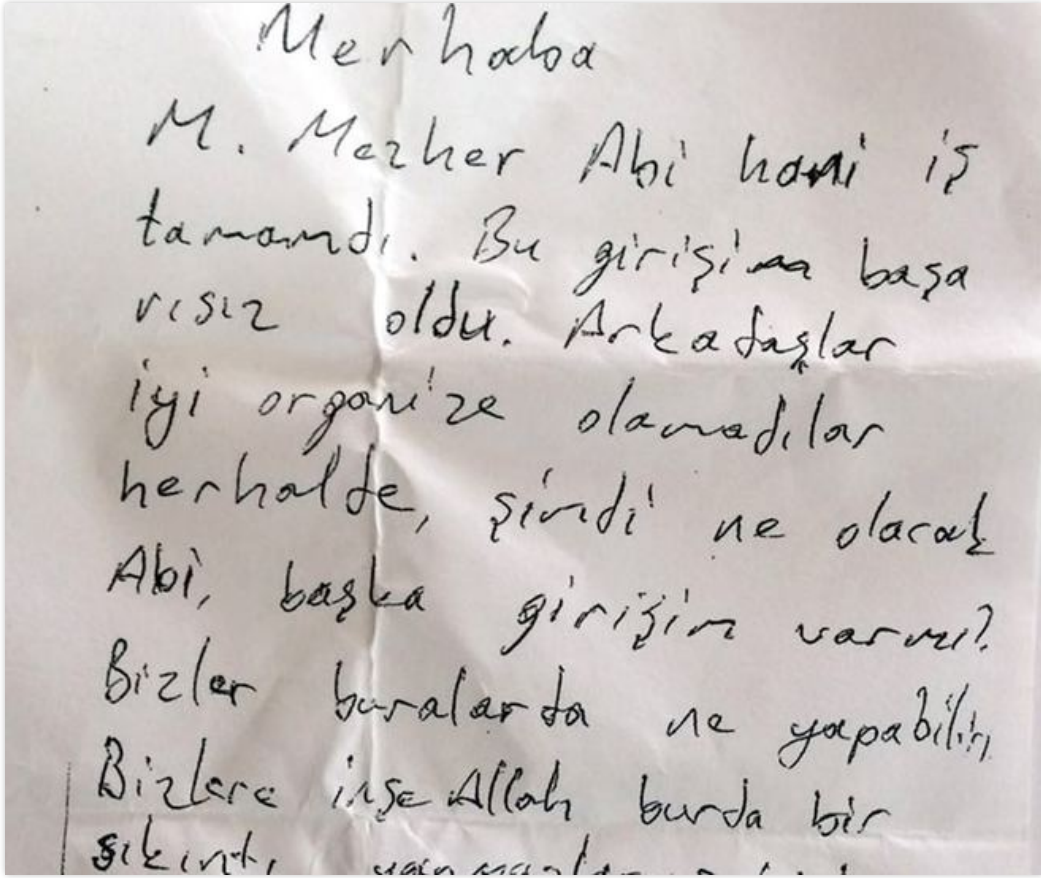 Merhaba
M. Mezher Abi hani iş
tamamdı. Bu girişim başa
rısız oldu. Arkadaşlar
iyi organize olamadılar
herhalde, şimdi ne olacak
Abi, başka girişim varmı?
Bizler buralarda ne yapabiliri
Bizlere inşeAllah burda bir
sıkıntı